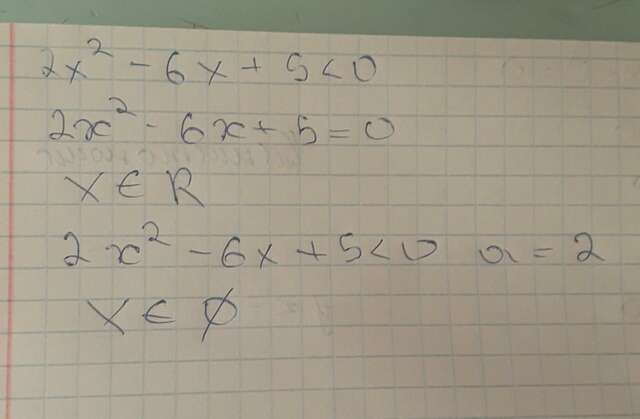 2x² - 6x + 5 < 0
2x² - 6x + 5 = 0
x ∈ R
2x² - 6x + 5 < 0 a = 2
x ∈ ∅